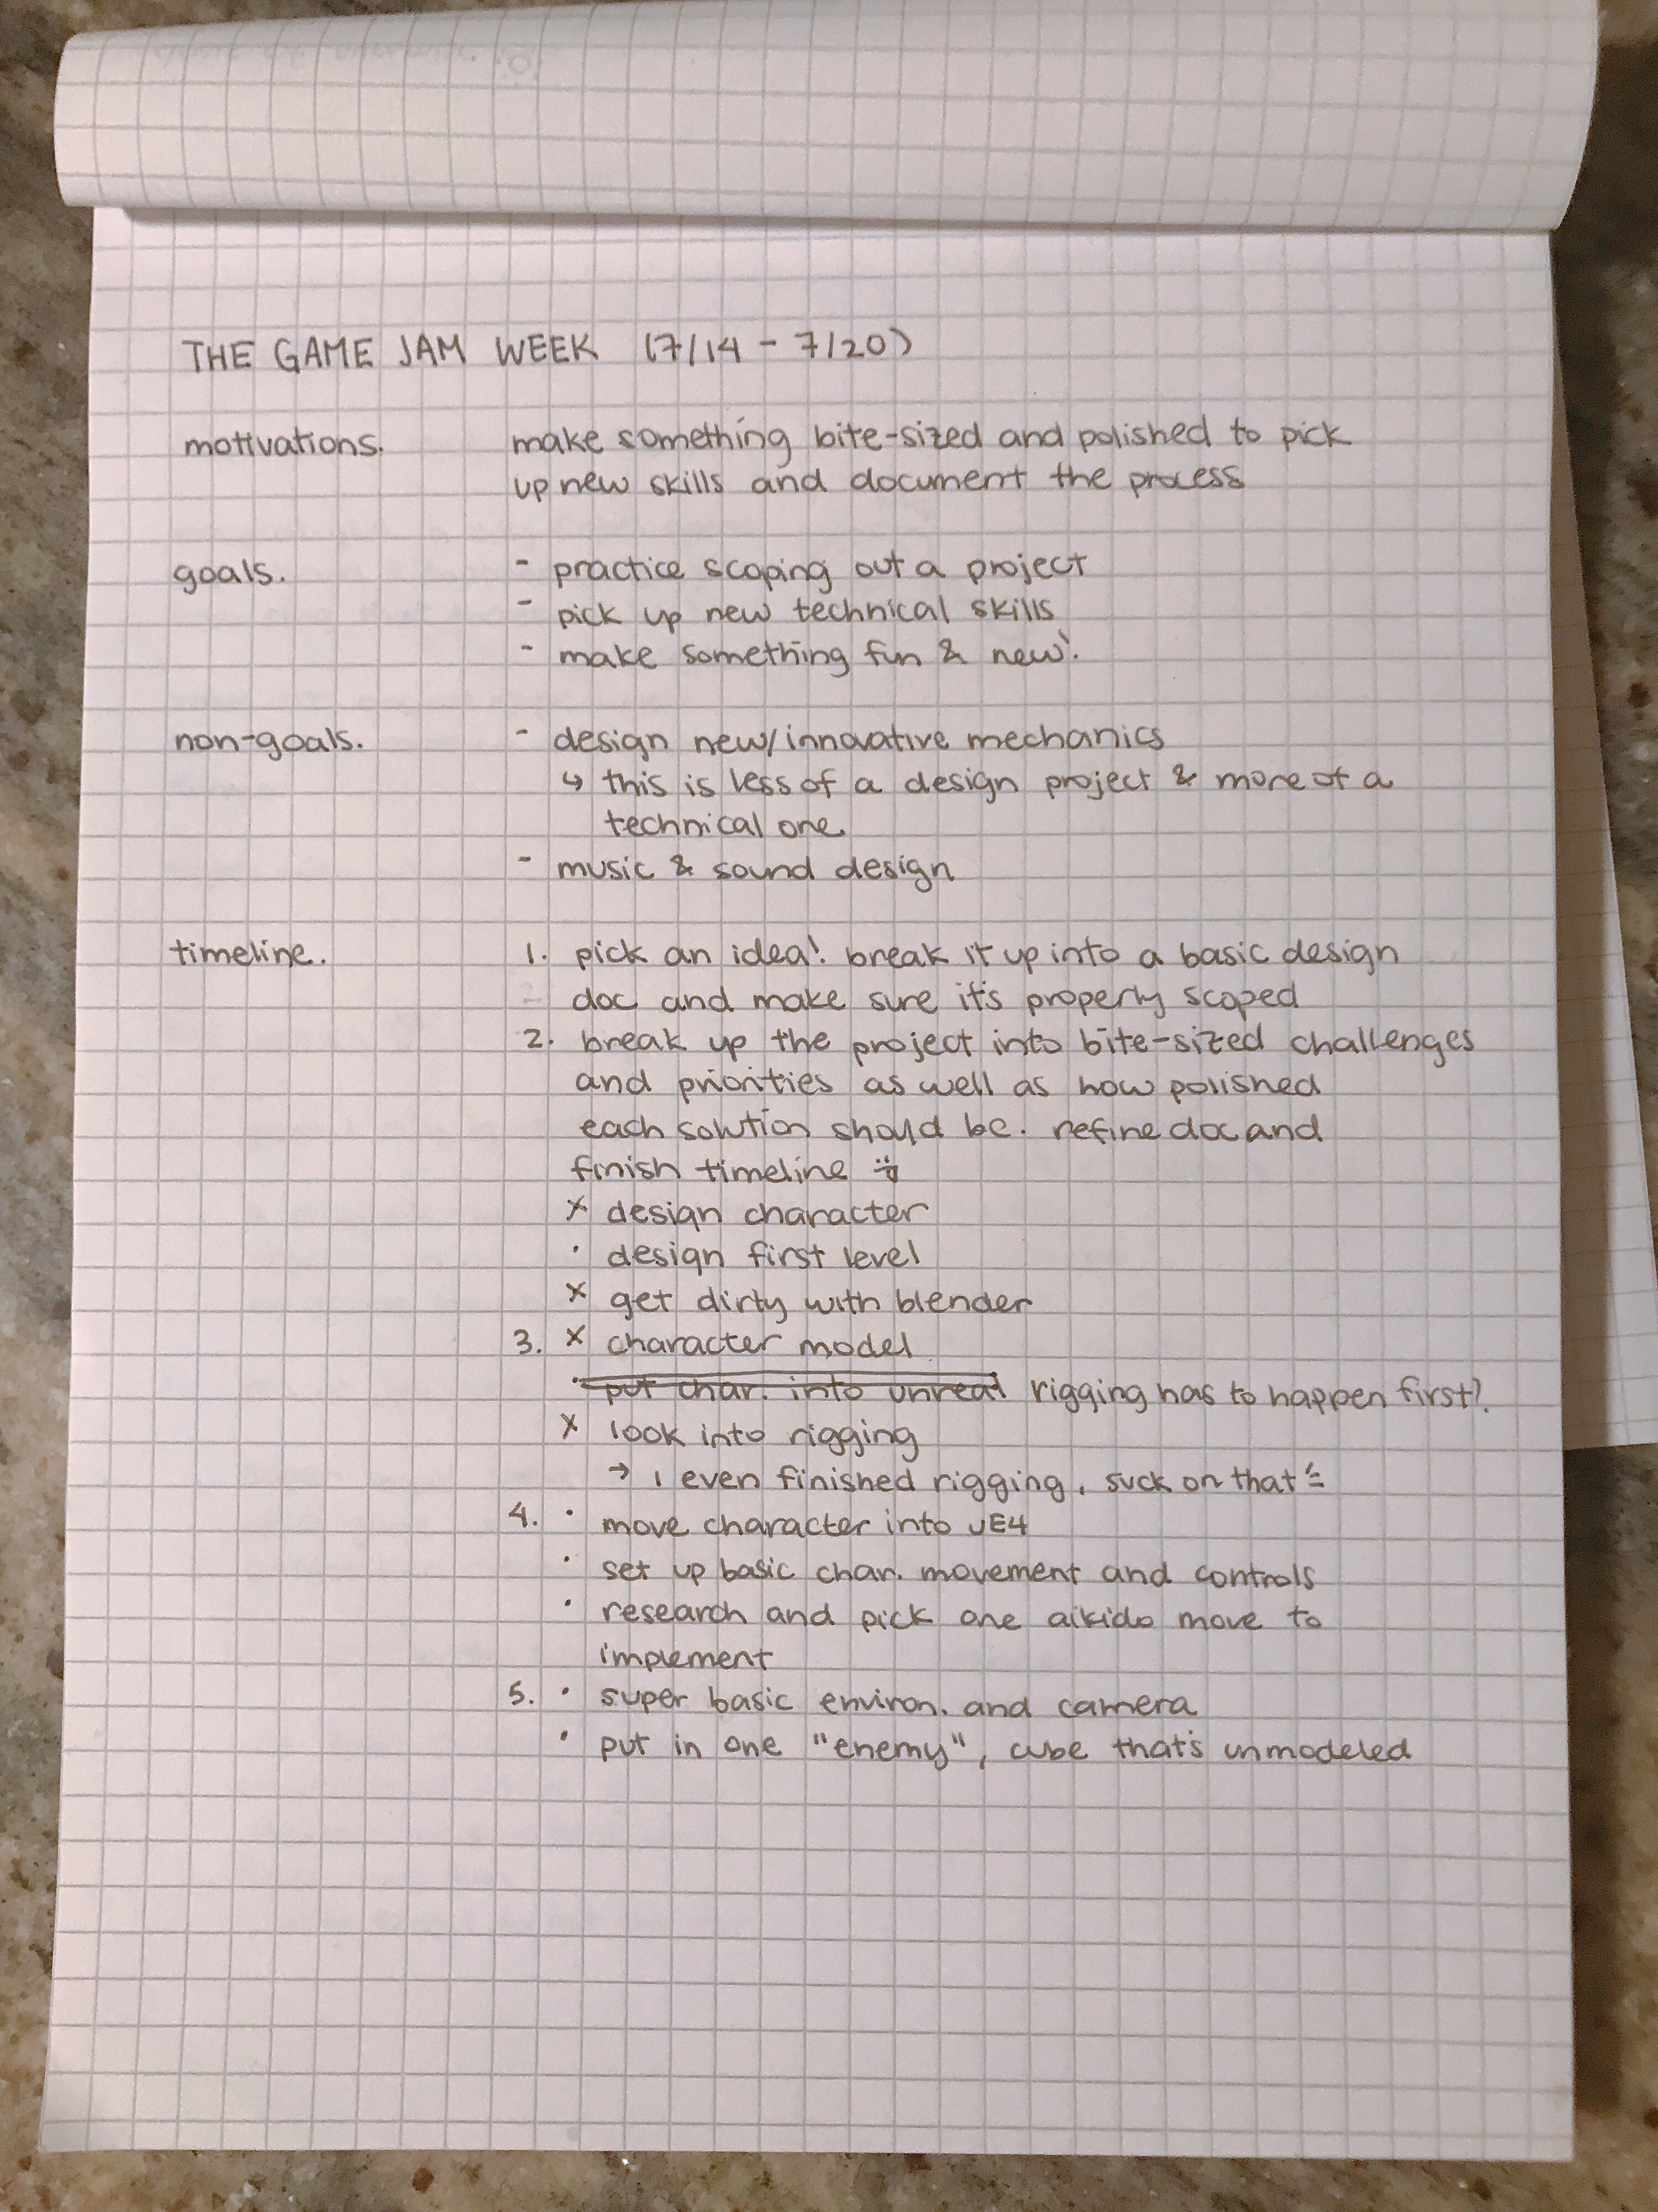 THE GAME JAM WEEK (7/14 - 7/20)
motivations. make something bite-sized and polished to pick
up new skills and document the process
goals. - practice scoping out a project
- pick up new technical skills
- make something fun & new!
non-goals. - design new/innovative mechanics
↳ this is less of a design project & more of a
technical one.
- music & sound design
timeline. 1. pick an idea! break it up into a basic design
doc and make sure it's properly scoped
2. break up the project into bite-sized challenges
and priorities as well as how polished
each solution should be. refine doc and
finish timeline
x design character
· design first level
x get dirty with blender
3. x character model
· put char. into unreal rigging has to happen first!
x look into rigging
→ i even finished rigging, suck on that
4. · move character into UE4
· set up basic char. movement and controls
· research and pick one aikido move to
implement
5. · super basic environ. and camera
· put in one "enemy", cube that's unmodeled